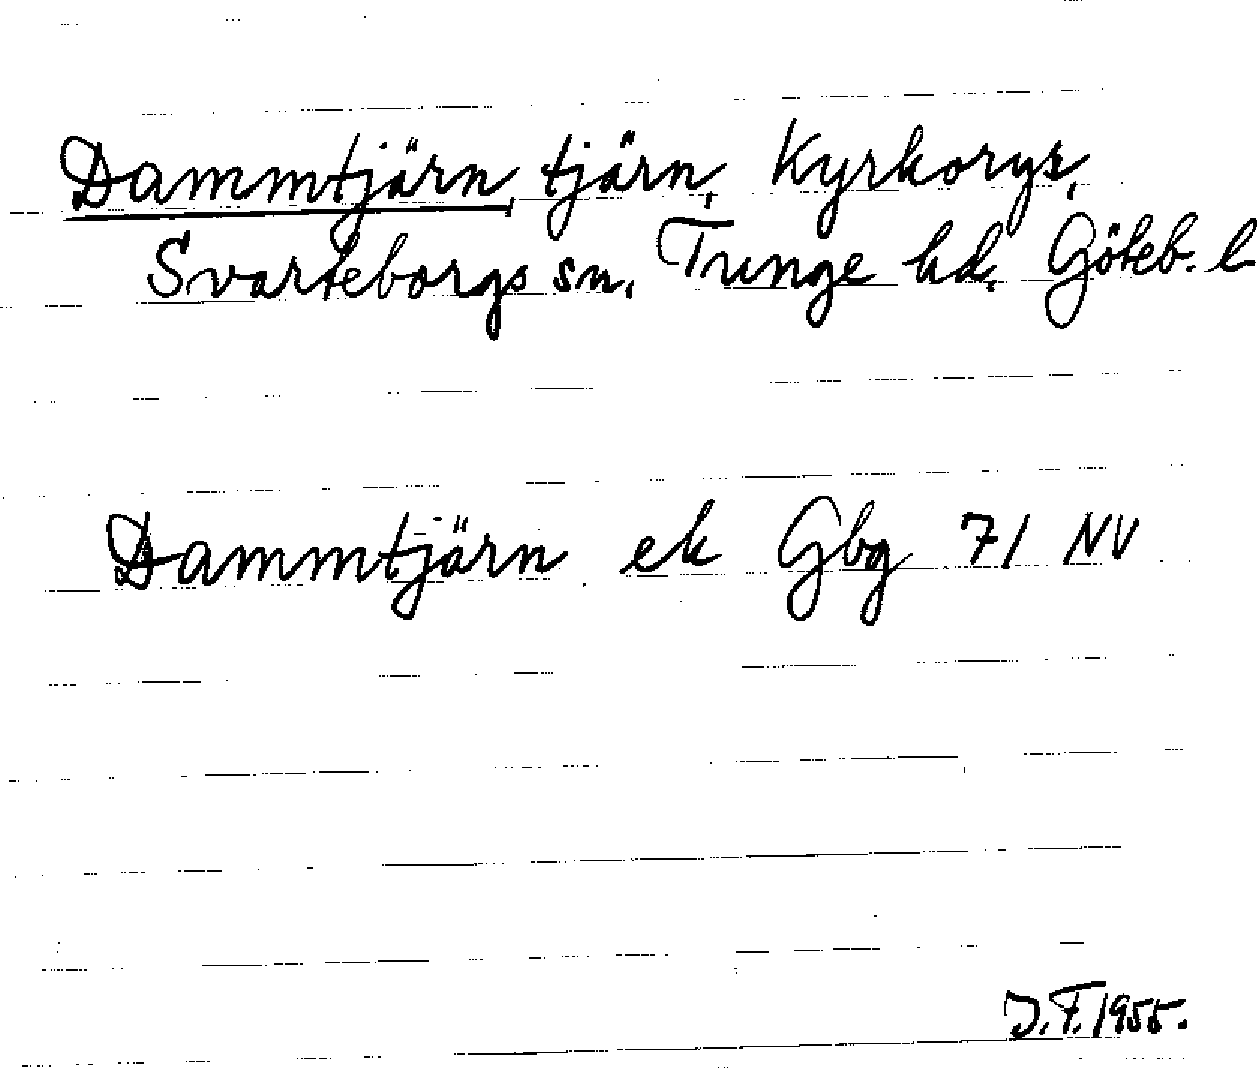 Dammtjärn, tjärn, Kyrkorys,
Svarteborgs sn, Tunge hd, Göteb. l
Dammtjärn ek Gbg 71 NV
J.F. 1955.